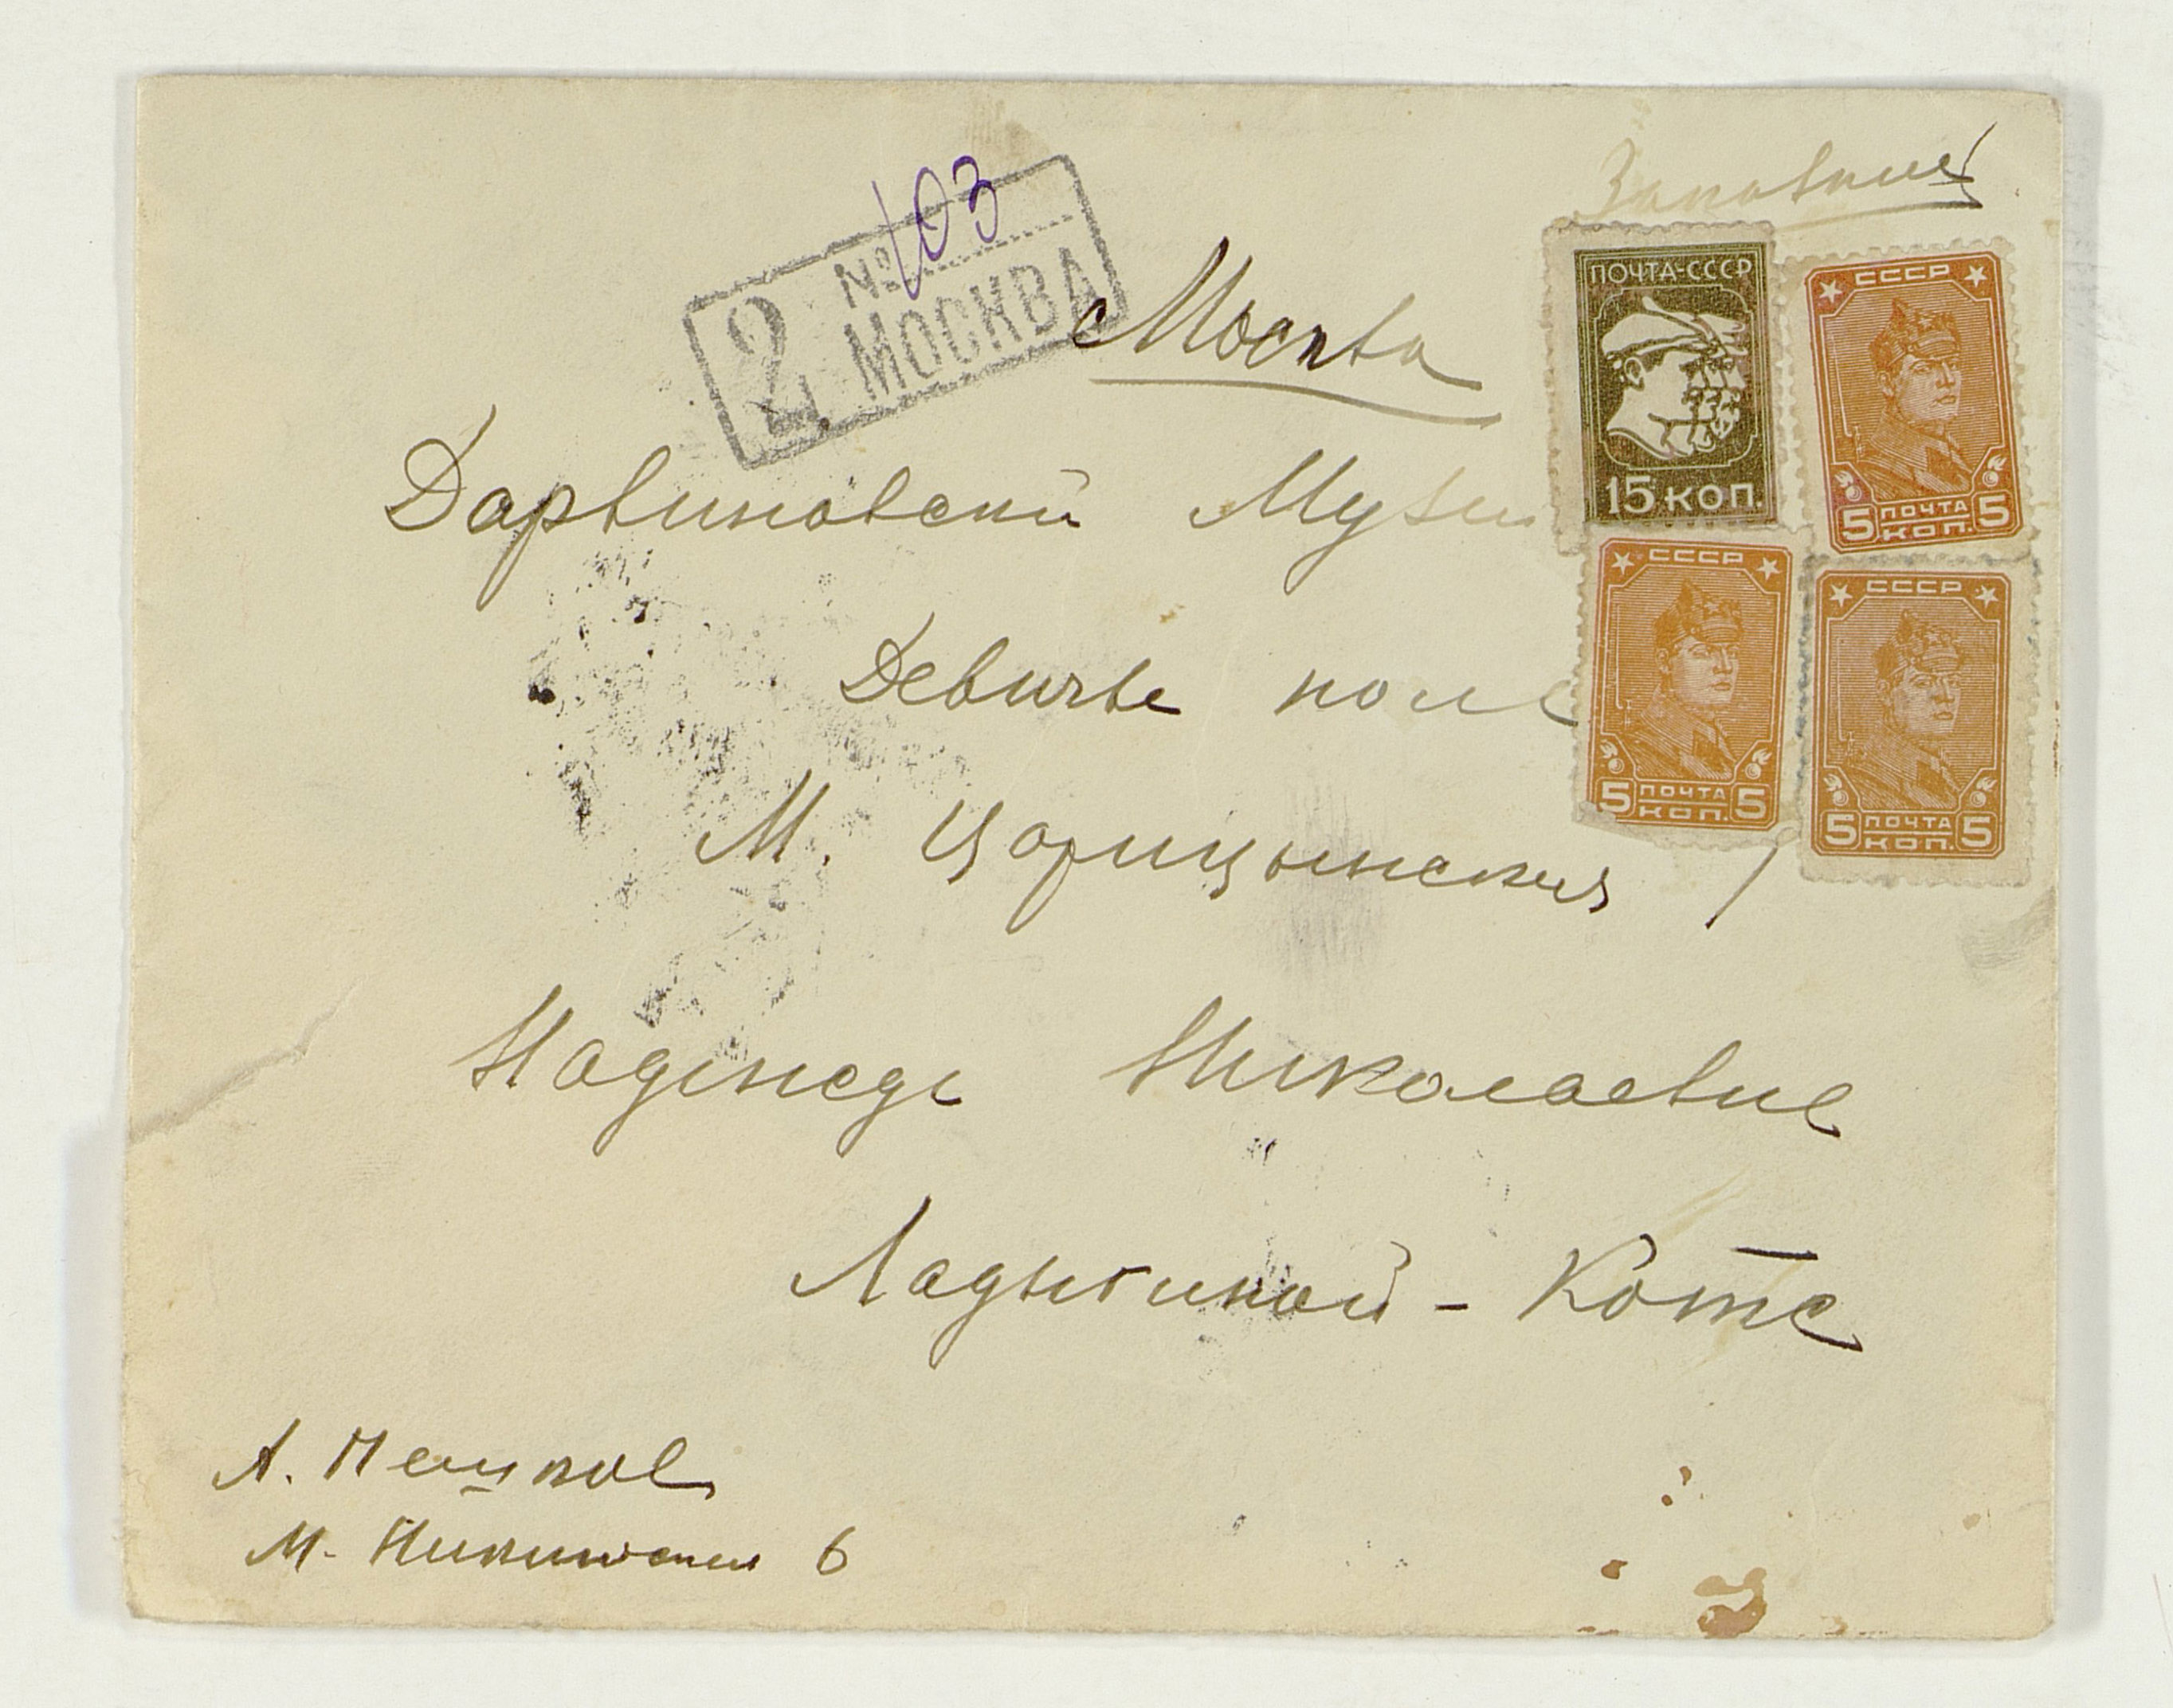 Заказное
№ 103
2 МОСКВА
Москва
ПОЧТА-СССР
15 КОП.
СССР
5 ПОЧТА КОП. 5
Дарвиновский Музей
СССР
5 ПОЧТА КОП. 5
СССР
5 ПОЧТА КОП. 5
Девичье поле
М. Царицынская 1
Надежде Николаевне
Ладыгиной-Котс
А. Пешков
М. Никитская 6